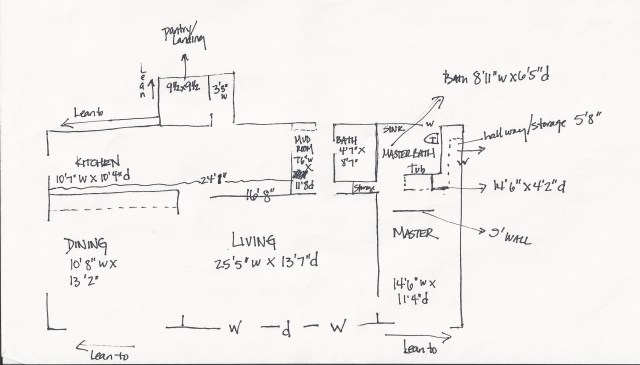 Pantry/
Landing
Lean
9½x9½
3'5"
w
Bath 8'11"w x 6'5"d
Lean to
SINK
w
hallway/storage 5'8"
MUD
ROOM
7'6"w
X
11'8d
BATH
4'7"X
8'7"
MASTER BATH
T
Tub
W
KITCHEN
10'7"W X 10'4"d
24'9"
16'8"
Storage
14'6"X4'2"d
DINING
10'8"w X
13'2"
LIVING
25'5"w X 13'7"d
MASTER
5' WALL
14'6"w X
11'4"d
W d W
Lean-to
Lean to